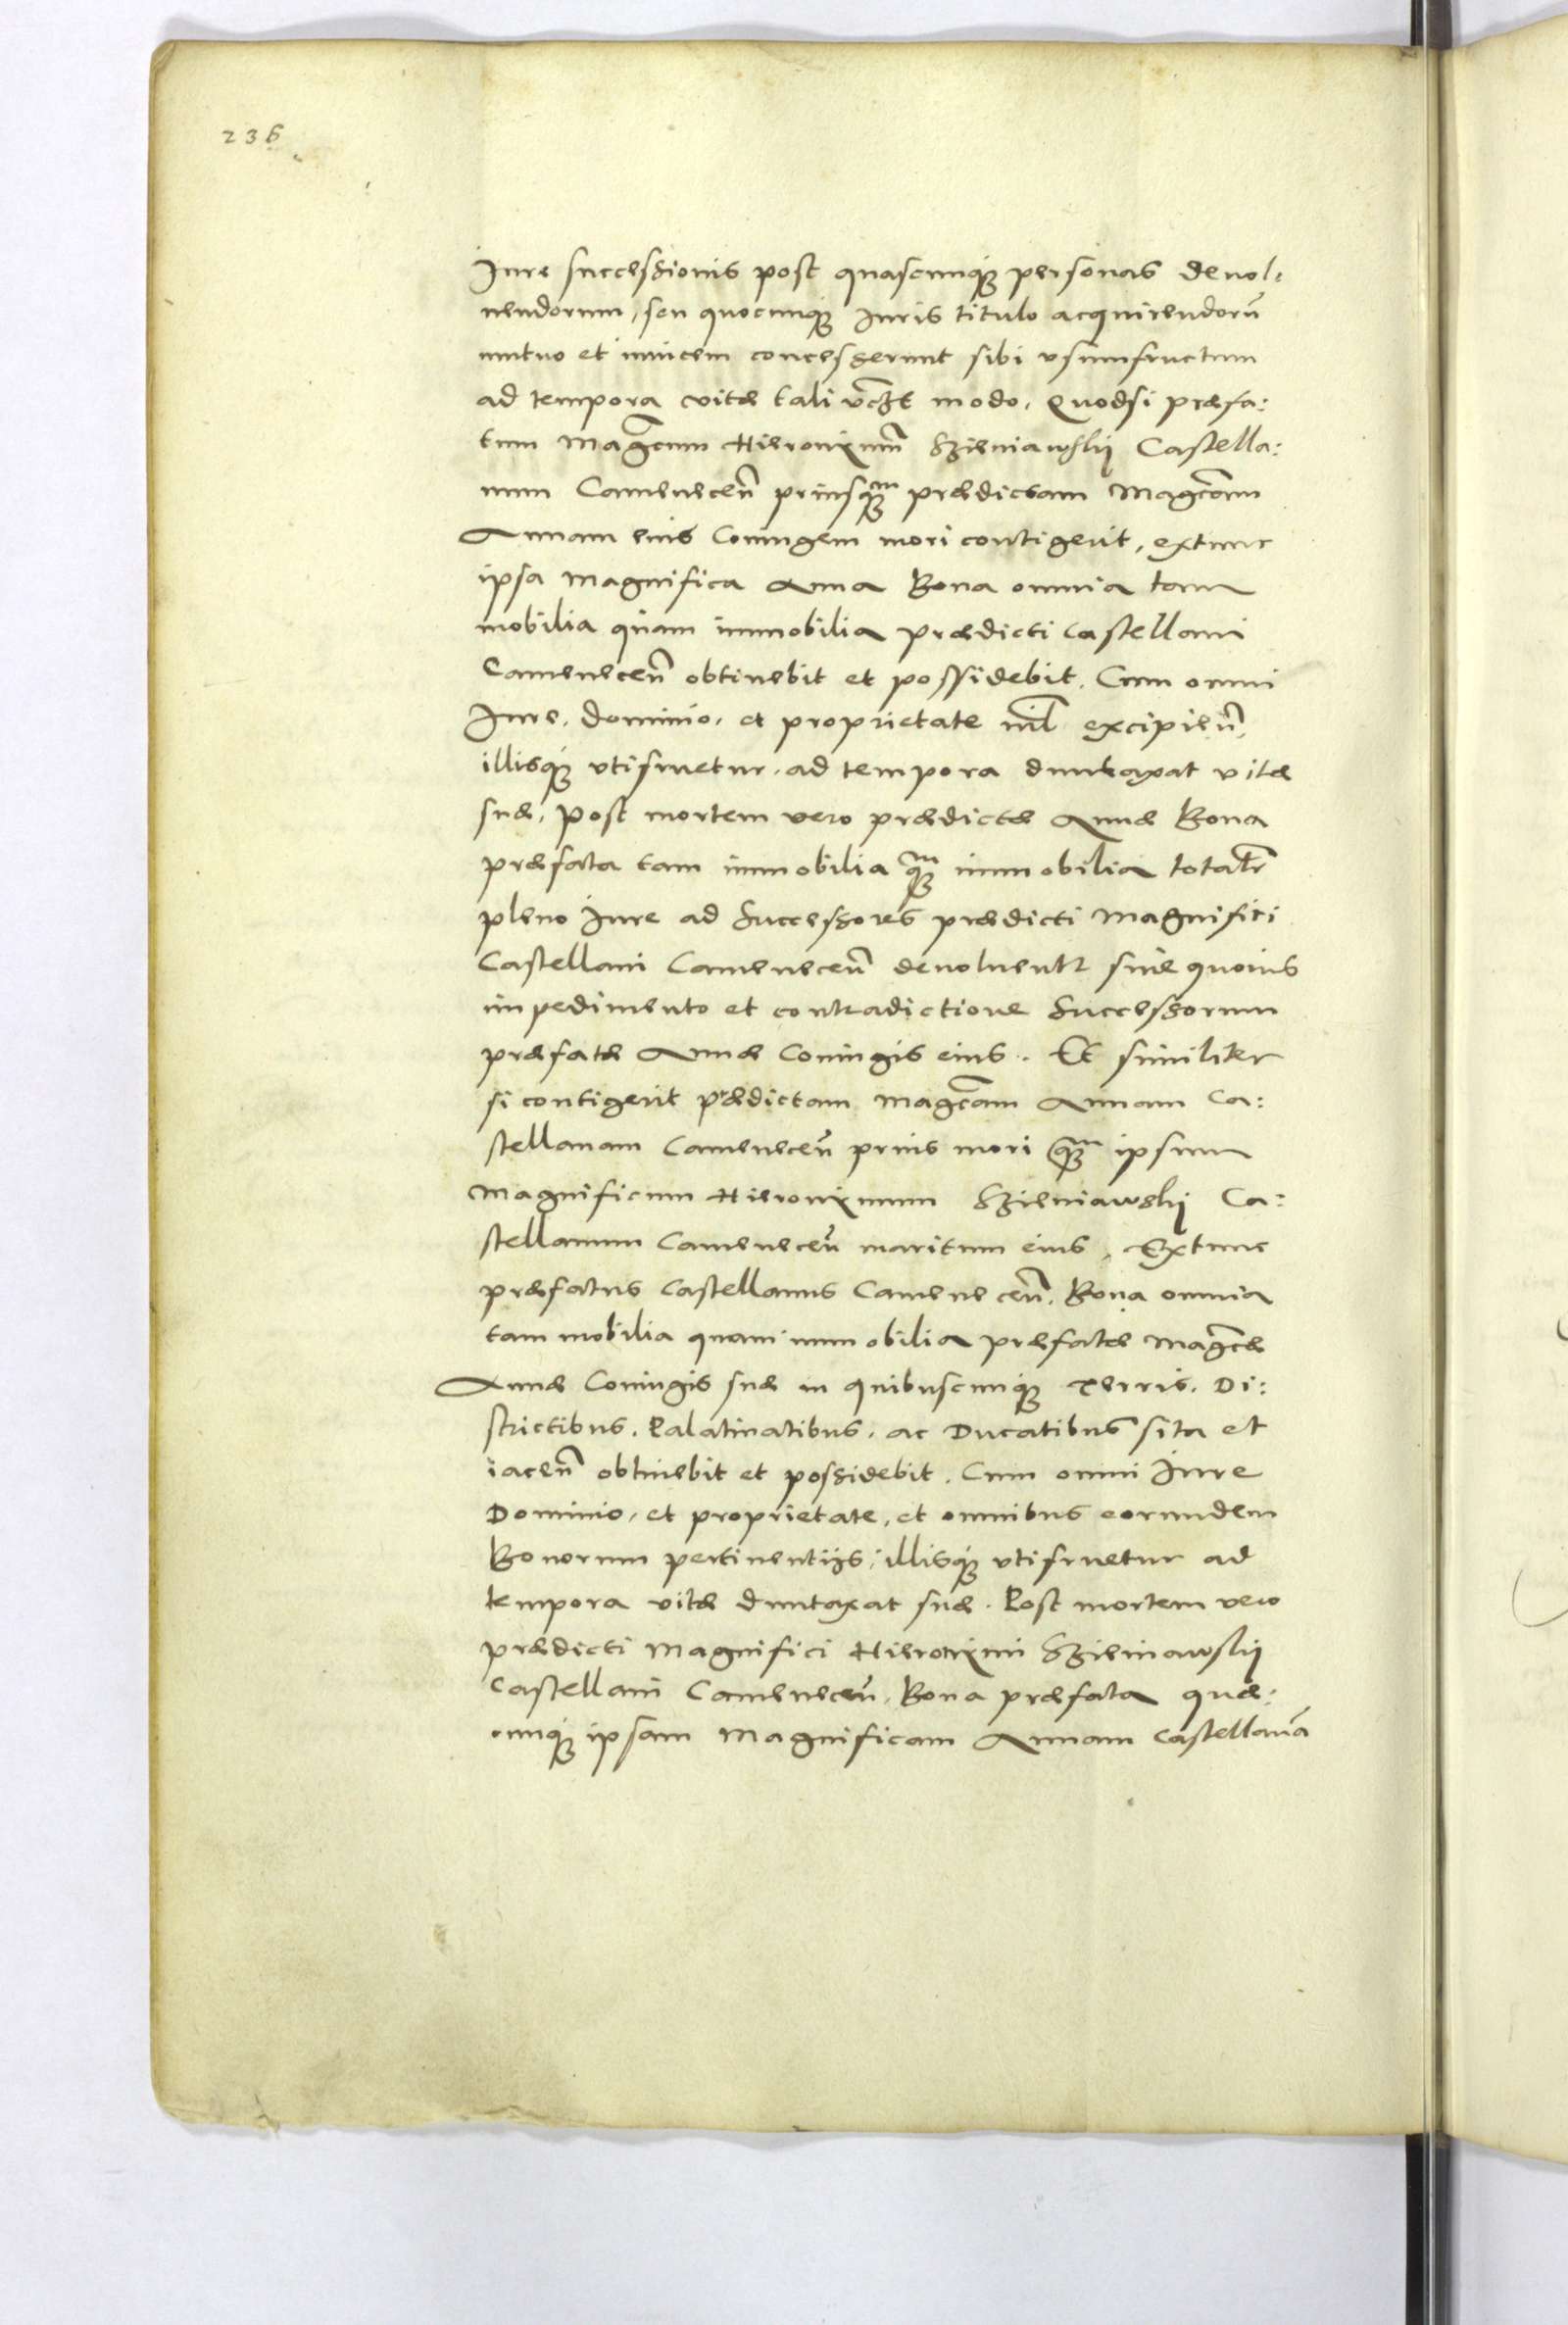 236
Iure successionis post quascunq́ꝫ personas deuol:
uendorum, seu quocunq́ꝫ Iuris titulo acquirendorũ
mutuo et inuicem concesserunt sibi vsumfructum
ad tempora vitæ tali modo. Quodsi præfa:
tum Magcum Hieronimũ Szieniawskij Castella:
num Camenecen̄ priusqꝫm prædictam Magcam
Annam eius Coniugem mori contigerit, extunc
ipsa Magnifica Anna Bona omnia tam
mobilia quam immobilia prædicti Castellani
Camenecen̄ obtinebit et possidebit. Cum omni
Iure, dominio, et proprietate nil excipien̄,
illisq́ꝫ vtifruetur, ad tempora duntaxat vitæ
suæ, Post mortem vero prædictæ Annæ Bona
præfata tam immobilia qꝫm immobilia totalr̄
pleno Iure ad Successores prædicti Magnifici
Castellani Camenecen̄ deuoluentr sine quouis
impedimento et contradictione Successorum
præfatæ Annæ Coniugis eius. Et similiter
si contigerit prædictam Magcam Annam Ca:
stellanam Camenecen̄ prius mori qꝫm ipsum
Magnificum Hieronimum Szieniawskij Ca:
stellanum Camenecen̄ maritum eius, Extunc
præfatus Castellanus Camenecen̄. Bona omnia
tam mobilia quam immobilia præfatæ Magcæ
Annæ Coniugis suæ in quibuscunq́ꝫ Terris. Di:
strictibus. Palatinatibus. ac Ducatibus sita et
iacen̄ obtinebit et possidebit. Cum omni Iure
Dominio, et proprietate, et omnibus eorundem
Bonorum pertinentijs, illisq́ꝫ vtifruetur ad
tempora vitæ duntaxat suæ. Post mortem vero
prædicti Magnifici Hieronimi Szieniawskij
Castellani Camenecen̄, Bona præfata quæ:
cunq́ꝫ ipsam Magnificam Annam Castellanā